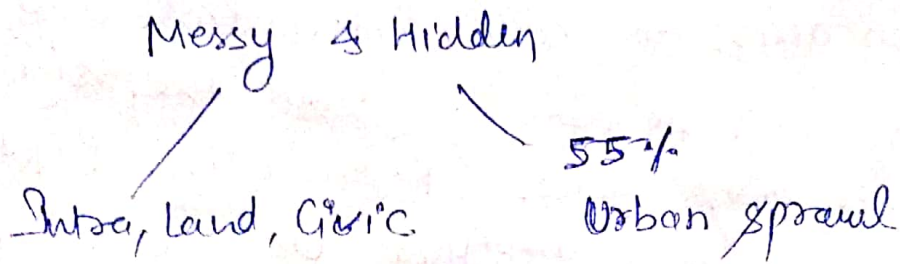 Messy & Hidden
55%
Intra, Land, Civic
Urban sprawl